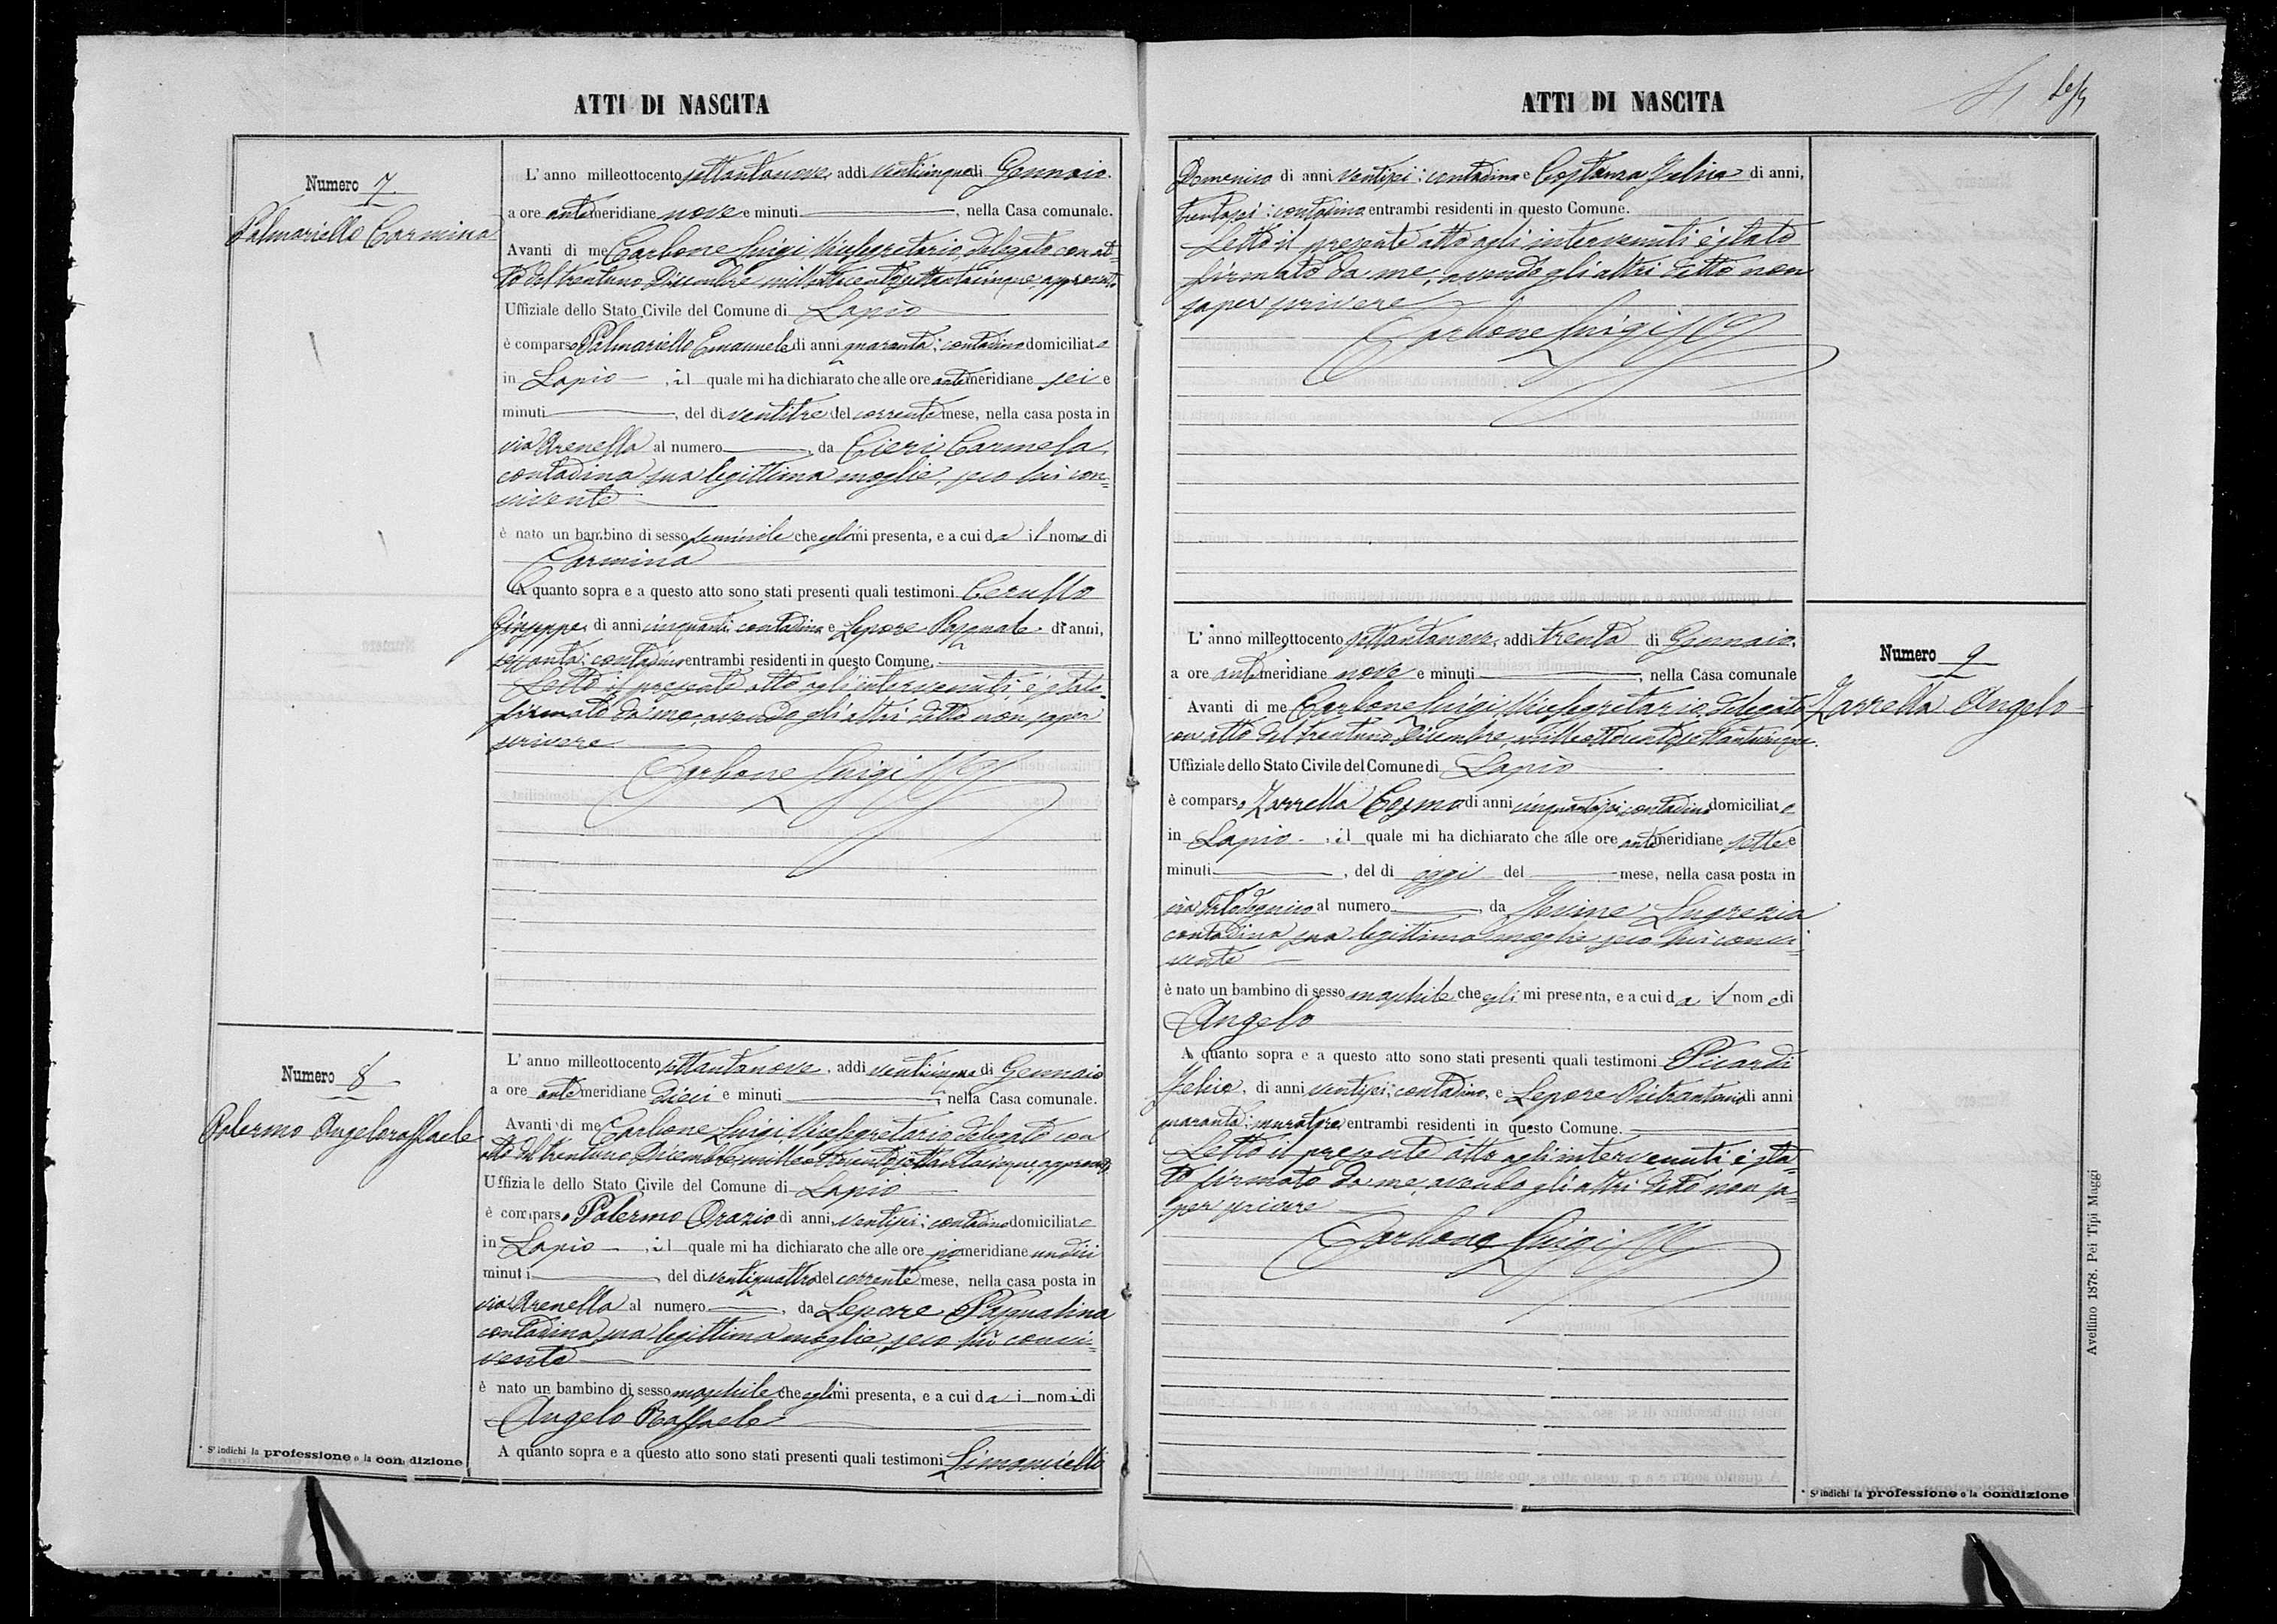 ATTI DI NASCITA
Numero 7
Palmariello Carmina
L'anno milleottocento settantanove, addi venticinque di Gennaio
a ore antimeridiane nove e minuti, nella Casa comunale.
Avanti di me Carbone Luigi Vicesegretario, delegato con at-
to del trentuno Dicembre milleottocentosettantacinque, approvato
Uffiziale dello Stato Civile del Comune di Lapio
è comparso Palmariello Emanuele di anni quaranta; contadino domiciliato
in Lapio, il quale mi ha dichiarato che alle ore antimeridiane sei e
minuti, del di ventitre del corrente mese, nella casa posta in
via Arenella al numero, da Cieri Carmela,
contadina sua legittima moglie, seco lui con=
vivente
è nato un bambino di sesso feminile che egli mi presenta, e a cui da il nome di
Carmina
A quanto sopra e a questo atto sono stati presenti quali testimoni Cerullo
Giuseppe, di anni cinquanta contadino e Lepore Pasquale di anni,
sessanta: contadino entrambi residenti in questo Comune.
Letto il presente atto agli intervenuti è stato
firmato da me, avendo gli altri detto non saper
scrivere
Carbone Luigi
Numero 8
Palermo Angeloraffaele
L'anno milleottocento settantanove, addi venticinque di Gennaio
a ore antimeridiane dieci e minuti, nella Casa comunale.
Avanti di me Carbone Luigi, Vicesegretario delegato con
atto del trentuno Dicembre milleottocentosettantacinque, approvato,
Uffiziale dello Stato Civile del Comune di Lapio
è comparso Palermo Orazio di anni ventisei; contadino domiciliato
in Lapio, il quale mi ha dichiarato che alle ore pomeridiane undici
minuti, del di ventiquattro del corrente mese, nella casa posta in
via Arenella al numero, da Lepore Pasqualina
contadina sua legittima moglie, seco lui convi=
vente
è nato un bambino di sesso maschile che egli mi presenta, e a cui da i nomi di
Angelo Raffaele
A quanto sopra e a questo atto sono stati presenti quali testimoni Limongiello
* S'indichi la professione o la condizione
ATTI DI NASCITA
Domenico di anni ventisei; contadino e Costanza di anni,
trentasei: contadino entrambi residenti in questo Comune.
Letto il presente atto agli intervenuti è stato
firmato da me, avendo gli altri detto non
saper scrivere
Carbone Luigi
L'anno milleottocento settantanove, addi trenta di Gennaio,
a ore antimeridiane nove e minuti, nella Casa comunale
Avanti di me Carbone Luigi Vicesegretario, delegato
con atto del trentuno Dicembre, milleottocentosettantacinque.
Uffiziale dello Stato Civile del Comune di Lapio
è comparso Zarrella Cosmo di anni cinquantasei contadino domiciliato
in Lapio, il quale mi ha dichiarato che alle ore antimeridiane sette e
minuti, del di oggi del mese, nella casa posta in
via al numero, da Lugrezia
contadina sua legittima moglie seco lui convi-
vente
è nato un bambino di sesso maschile che egli mi presenta, e a cui da il nome di
Angelo
A quanto sopra e a questo atto sono stati presenti quali testimoni Picardi
di anni ventisei; contadino, e Lepore Pietrantonio di anni
quaranta: muratore entrambi residenti in questo Comune.
Letto il presente atto agli intervenuti è sta=
to firmato da me, avendo gli altri detto non sa-
per scrivere
Carbone Luigi
Numero 9
Zarrella Angelo
* S'indichi la professione o la condizione
Avellino 1878. Pei Tipi Maggi